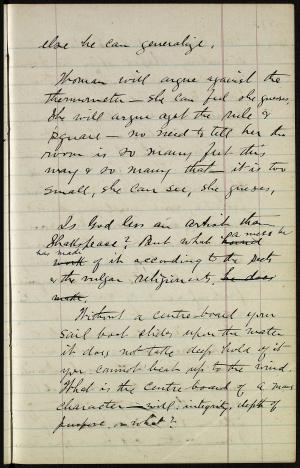 else he can generalize.
Woman will argue against the
thermometer — she can feel she guesses,
She will argue agst the rule &
square — no need to tell her the
room is so many feet this
way & so many that — it is too
small, she can see, she guesses,
Is God less an artist than
Shakespeare? But what a mess he
has made
work of it according to the Poets
& the vulgar religionists, he does
make.
Without a centre-board your
sail boat slides upon the water
it does not take deep hold of it
you cannot beat up to the wind.
What is the centre board of a mans
character — will, integrity, depth of
purpose, or what?